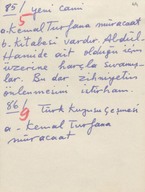 85/ Yeni Cami
5
a-Kemal Turfana müracaat
b-Kitabesi vardır. Abdül-
Hamide ait olduğu için
üzerine harçla sıvamış-
lar. Bu dar zihniyetin
önlenmesini istirham.
86/ Türk Kuşusu çeşmesi
9
a- Kemal Turfana
müracaat